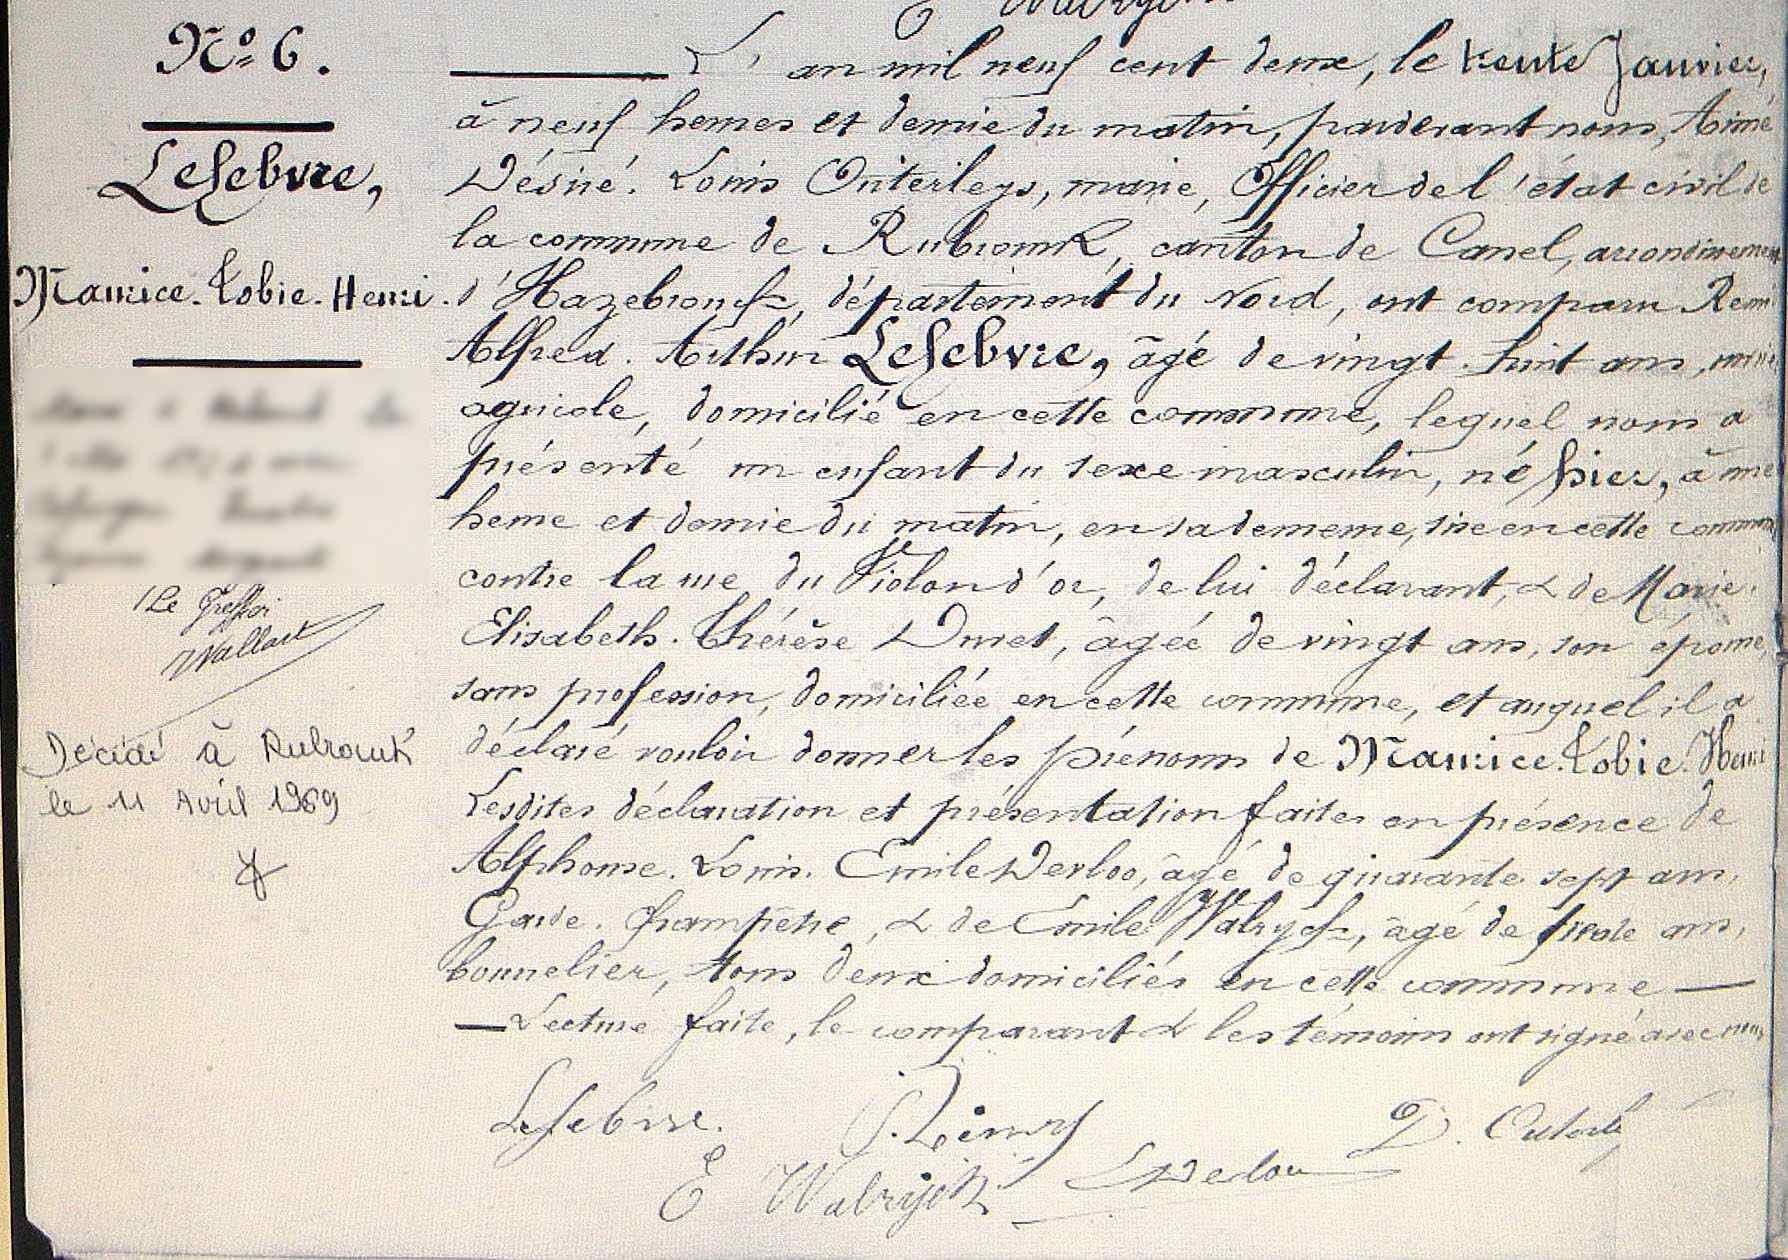 Nº 6.
Lefebvre,
Maurice. Tobie. Henri.
Le Greffier
Wallart
Décédé à Rubrouck
le 11 Avril 1969
L'an mil neuf cent deux, le trente Janvier,
à neuf heures et demie du matin, pardevant nous, Aimé
Désiré. Louis Outerleys, maire, Officier de l'état civil de
la commune de Rubrouck, canton de Cassel, arrondissement
d'Hazebrouck, département du Nord, ont comparu Remi
Alfred. Arthur Lefebvre, âgé de vingt-huit ans,
agricole, domicilié en cette commune, lequel nous a
présenté un enfant du sexe masculin, né hier, à une
heure et demie du matin, en sa demeure, sise en cette commune
contre la rue du Violon d'or, de lui déclarant, & de Marie.
Elisabeth. Thérèse Duret, âgée de vingt ans, son épouse,
sans profession, domiciliée en cette commune, et auquel il a
déclaré vouloir donner les prénoms de Maurice. Tobie. Henri
Lesdites déclaration et présentation faites en présence de
Alphonse. Louis. Emile Derloo, âgé de quarante sept ans,
Garde. Champêtre, & de Emile Walryck, âgé de trente ans,
bonnelier, tous deux domiciliés en cette commune
Lecture faite, le comparant & les témoins ont signé avec nous
Lefebvre. Rémy D.
E Walryck